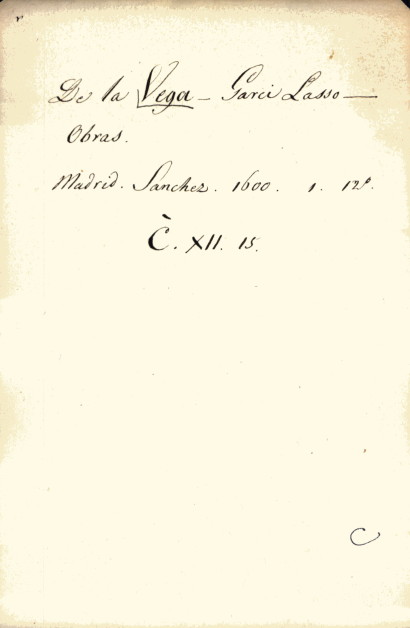 De la Vega – Garci Lasso —
Obras.
Madrid. Sanchez. 1600. 1. 12°.
C̀. XII. 15.
C